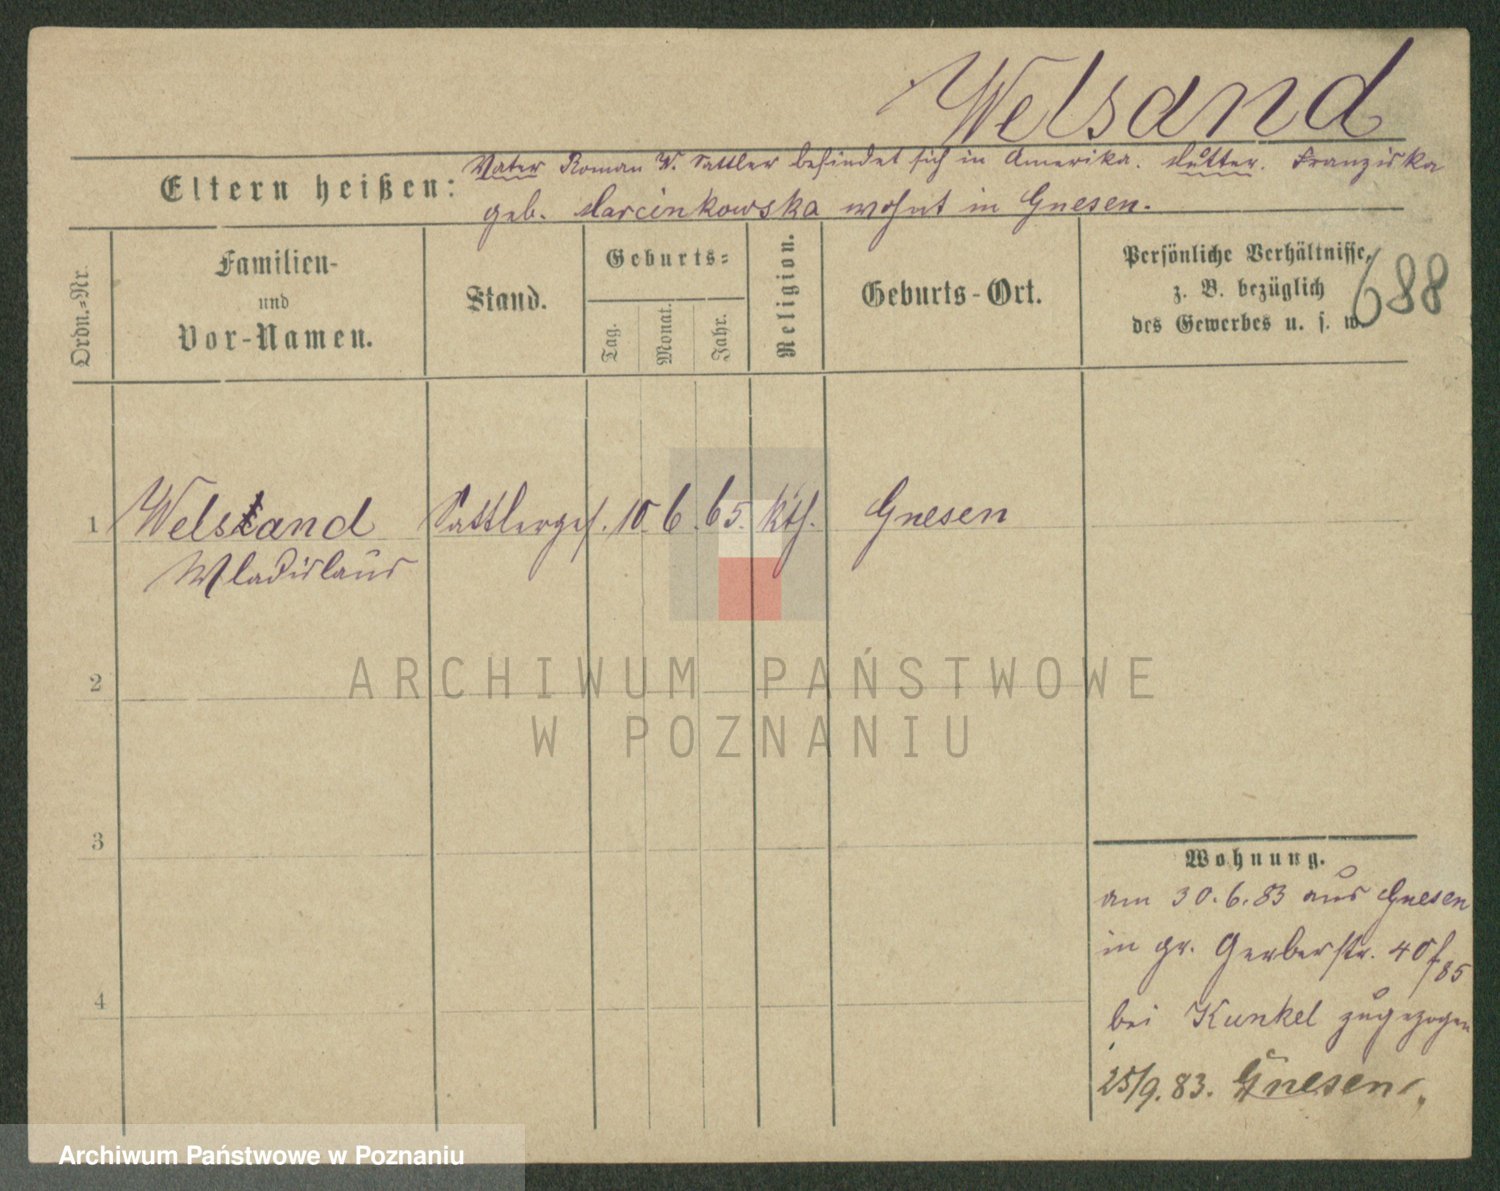 Welsand
Eltern heißen:
Vater Roman W. Sattler befindet sich in Amerika. Mutter. Franziska
geb. Marcinkowska wohnt in Gnesen.
Ordn.-Nr.
Familien-
und
Vor-Namen.
Stand.
Geburts-
Tag.
Monat.
Jahr.
Religion.
Geburts-Ort.
Persönliche Verhältnisse,
z. B. bezüglich
des Gewerbes u. s. w.
688
1 Welsand Sattlerges. 10. 6. 65. kth. Gnesen
Wladislaus
2
3
4
Wohnung.
am 30.6.83 aus Gnesen
in gr. Gerberstr. 40
bei Kunkel zugezogen
25/9. 83. Gnesen
ARCHIWUM PAŃSTWOWE
W POZNANIU
Archiwum Państwowe w Poznaniu